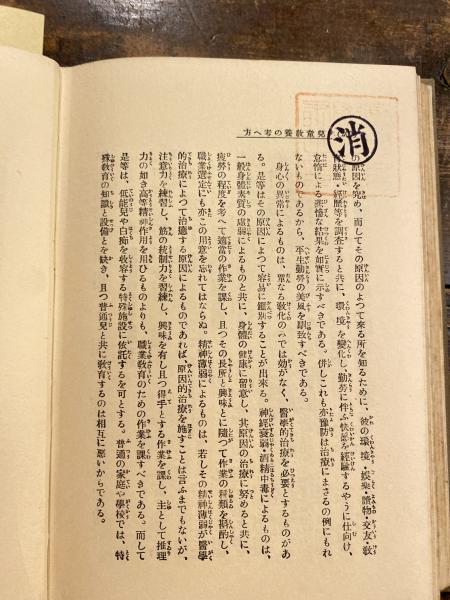 方へ考の養教童兒
消
の原因を究め、而してその原因のよつて來る所を知るために、彼の環境・娯樂・體物・交友・教
育狀態・經歷等を調査すると共に、環境を變化し、勤勞に伴ふ快感を經驗するやうに仕向け、
怠惰による悲慘な結果を如實に示すべきである。併しこれも亦豫防は治療にまさるの例にもれ
ないものであるから、平生勤勞の美風を馴致すべきである。
身心の異常によるものは、單なる教化のみでは効がなく、醫學的治療を必要とするものがあ
る。是等はその原因によつて容易に鑑別することが出來る。神經衰弱・酒精中毒によるものは、
一般身體素質の虛弱によるものと共に、身體の健康に留意し、其原因の治療に努めると共に、
疲勞の程度を考へて適當の作業を課し、且つその長所と興味とに隨つて作業の種類を斟酌し、
職業選定にも亦この用意を忘れてはならぬ。精神薄弱によるものは、若しその精神薄弱が醫學
的治療によつて治癒する原因によるものであれば、原因的治療を施すことは言ふまでもないが、
注意力を練習し、筋の統制力を習練し、興味を有し且つ得手とする作業を課し、主として推理
力の如き高等精神作用を用ひるものよりも、職業教育のための作業を課すべきである。而して
是等は、低能兒や白痴を收容する特殊施設に依託するを可とする。普通の家庭や學校では、特
殊教育の知識と設備とを缺き、且つ普通兒と共に敎育するのは相互に惡いからである。